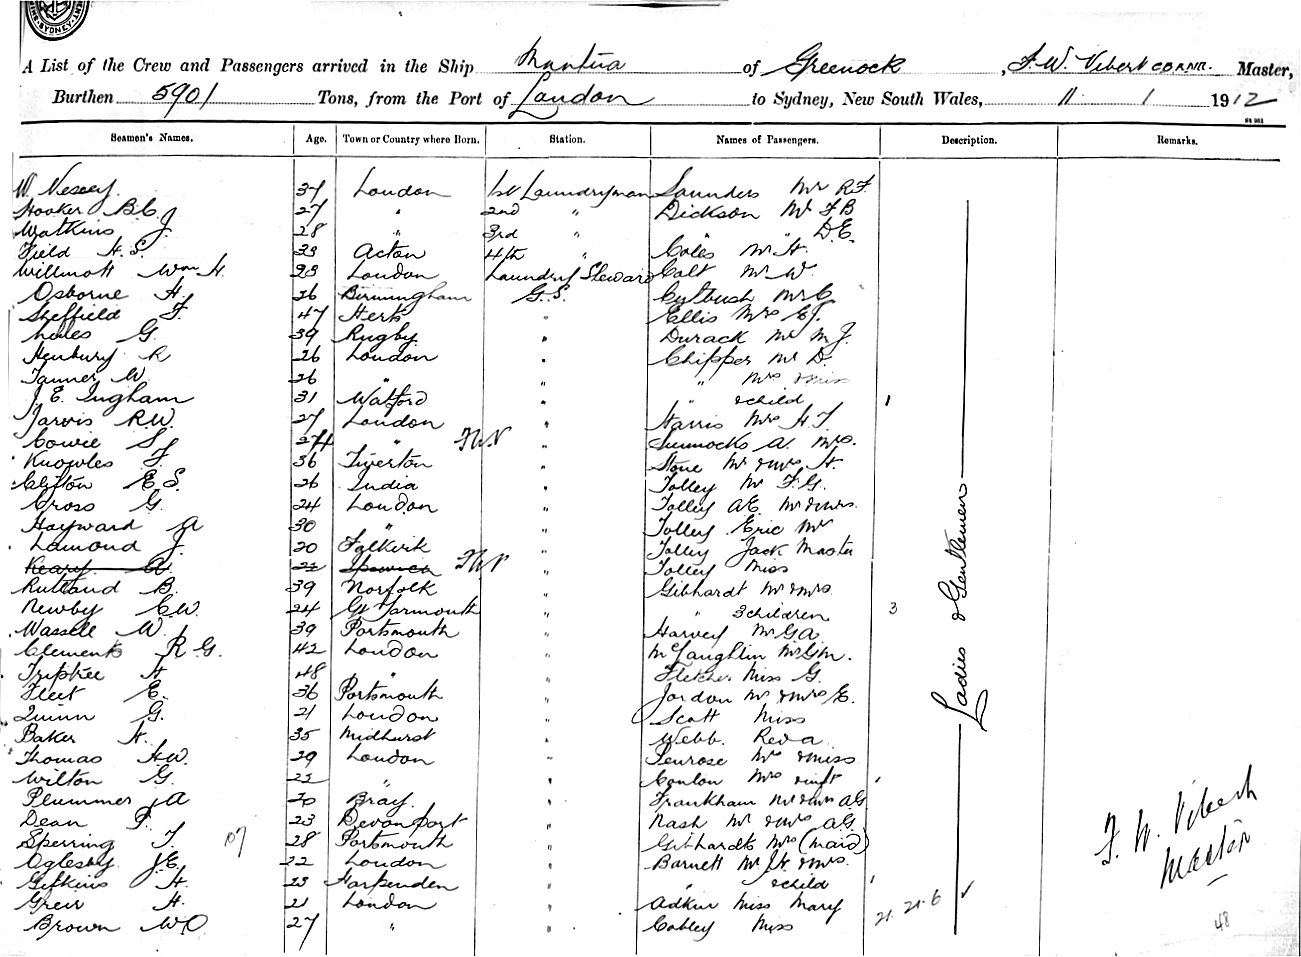 SYDNEY
A List of the Crew and Passengers arrived in the Ship Mantua of Greenock, F. W. Vibert CDRNR. Master,
Burthen 5901 Tons, from the Port of London to Sydney, New South Wales, 11 1 1912
Seamen's Names. Age. Town or Country where Born. Station. Names of Passengers. Description. Remarks.
W Vesey 37 London 1st Laundryman Saunders Mr R F
Hooker B.C. 27 " 2nd " Dickson Mr F B
Watkins J 28 " 3rd " " D.E.
Field H. S. 33 Acton 4th " Coles Mr H.
Willmott Wm H. 23 London Laundry Steward Colt Mr W
Osborne H. 26 Birmingham G.S. Cutbush Mr C
Sheffield F. 47 Herts " Ellis Mrs E J.
G. 39 Rugby " Durack Mr M J.
Henbury R 26 London " Chipper Mr D.
Tanner W 26 " " " Mrs & Miss
J. E. Ingham 31 Watford " " & child 1
Jarvis R.W. 27 London " Harris Mrs H. F.
Cowie S J 24 " " A. Mrs.
Knowles F. 36 Tiverton " Stone Mr & Mrs H.
Clifton E. S. 26 India " Tolley Mr F. G.
Cross G. 24 London " Tolley A E. Mr & Mrs.
Hayward A 30 " " Tolley Eric Mr
Lamond J. 20 Falkirk " Tolley Jack Master
Keary A 22 Ipswich " Tolley Miss
Rutland B. 39 Norfolk " Gibhardt Mr & Mrs
Newby C.W. 24 Gt Yarmouth " " 3 children 3
Wassell W. 39 Portsmouth " Harvey Mr G A
Clements R G. 42 London " McLaughlin Mr G M.
Triptree H 48 " " Fletcher Miss G.
Fleet E. 36 Portsmouth " Jordon Mr & Mrs E.
Quinn G. 21 London " Scott Miss
Baker H. 35 Midhurst " Webb. Rev A
Thomas H.W. 29 London " Penrose Mrs & Miss
Wilton G. 22 " " Conlon Mrs & inft
Plummer A 20 Bray. " Frankham Mr & Mrs A G
Dean P. 23 Devonport " Nash Mr & Mrs A G.
Sperring T. 28 Portsmouth " Gibhardts Mrs (maid)
Oglesby J.E. 22 London " Barnett Mr J H & Mrs.
Gifkins H. 23 Harpenden " " & child
Greer H. 21 London " Adkin Miss Mary 21. 21. 6
Brown W O 27 " " Cobley Miss
Ladies & Gentlemen
F. W. Vibert
Master
48